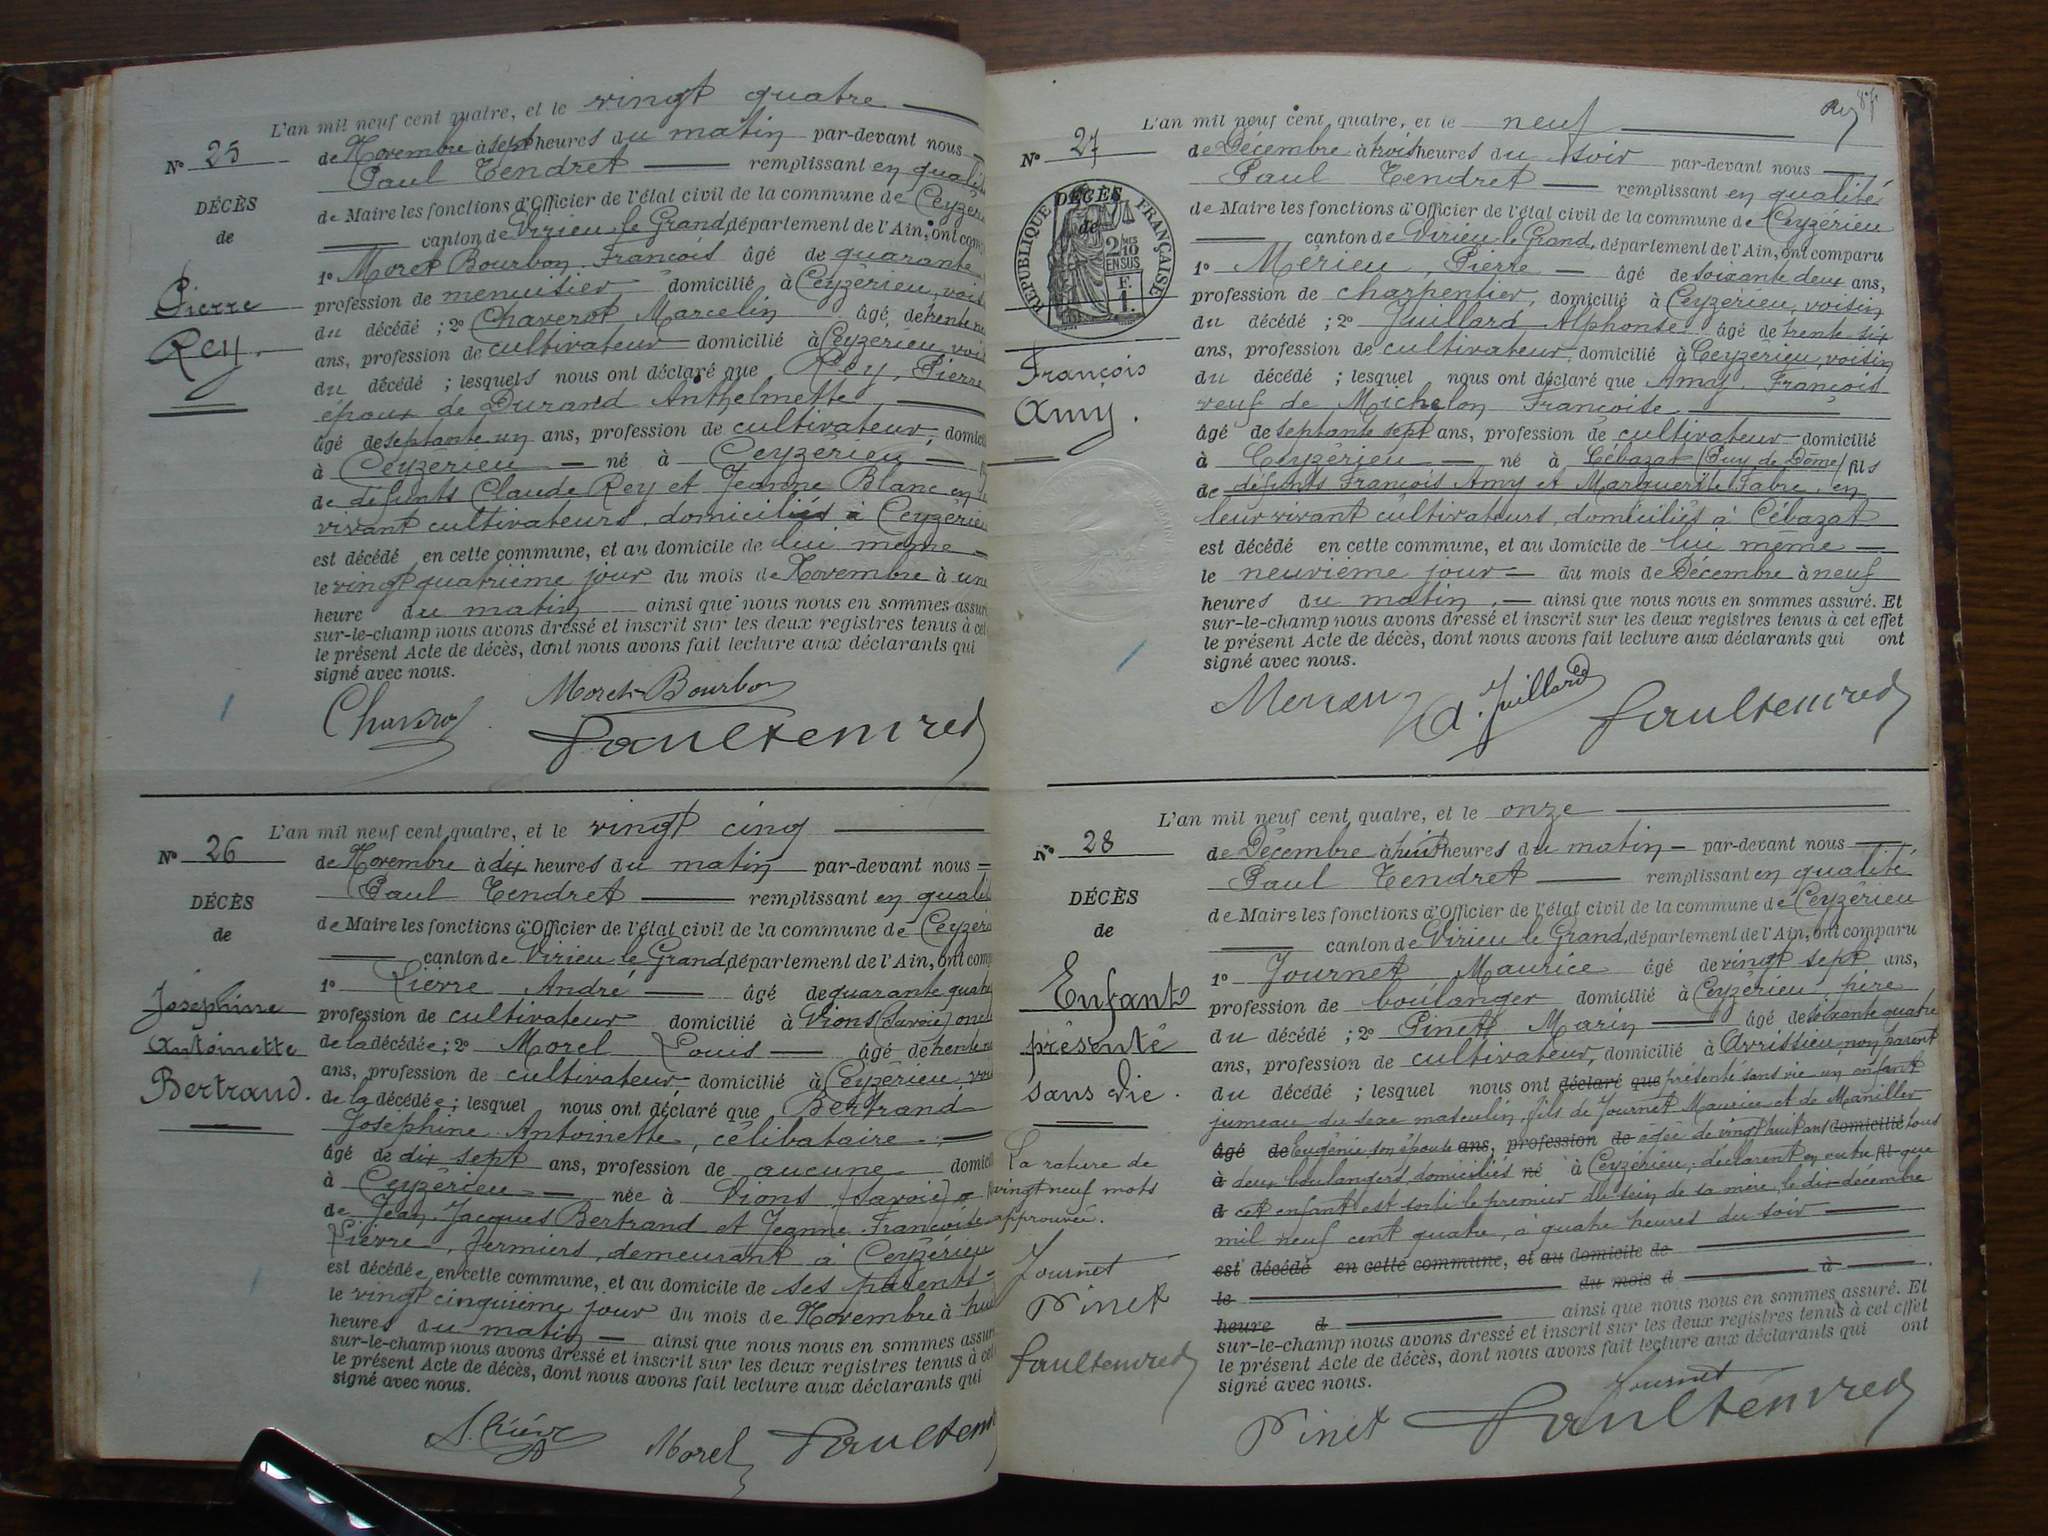 L'an mil neuf cent quatre, et le vingt quatre
N° 25
de Novembre à sept heures du matin par-devant nous
Paul Tendret remplissant en qualité
DÉCÈS
de Maire les fonctions d'Officier de l'état civil de la commune de Ceyzérieu
de
canton de Virieu le Grand, département de l'Ain, ont comp
1° Moret Bourbon François âgé de quarante
Pierre
profession de menuisier domicilié à Ceyzérieu, vois
du décédé ; 2° Chaverot Marcelin âgé de trente
Rey.
ans, profession de cultivateur domicilié à Ceyzérieu, vois
du décédé ; lesquels nous ont déclaré que Rey, Pierre
époux de Durand Anthelmette
âgé de septante un ans, profession de cultivateur, domicil
à Ceyzérieu né à Ceyzérieu
de défunts Claude Rey et Jeanne Blanc en
vivant cultivateurs, domiciliés à Ceyzérieu
est décédé en cette commune, et au domicile de lui même
le vingt quatrième jour du mois de Novembre à une
heure du matin ainsi que nous nous en sommes assuré
sur-le-champ nous avons dressé et inscrit sur les deux registres tenus à cet
le présent Acte de décès, dont nous avons fait lecture aux déclarants qui
signé avec nous.
Chaverot
Moret-Bourbon
Paul Tendret
L'an mil neuf cent quatre, et le vingt cinq
N° 26
de Novembre à dix heures du matin par-devant nous
Paul Tendret remplissant en qualité
DÉCÈS
de Maire les fonctions d'Officier de l'état civil de la commune de Ceyzéri
de
canton de Virieu le Grand, département de l'Ain, ont comp
1° Lièvre André âgé de quarante quatre
Joséphine
profession de cultivateur domicilié à Vions (Savoie) oncle
Antoinette
de la décédée ; 2° Morel Louis âgé de trente
Bertrand.
ans, profession de cultivateur domicilié à Ceyzérieu, voi
de la décédée ; lesquel nous ont déclaré que Bertrand
Joséphine Antoinette, célibataire
âgé de dix sept ans, profession de aucune domicil
à Ceyzérieu née à Vions (Savoie)
de Jean Jacques Bertrand et Jeanne Françoise
Lièvre, fermiers, demeurant à Ceyzérieu
est décédée en cette commune, et au domicile de ses parents
le vingt cinquième jour du mois de Novembre à huit
heures du matin ainsi que nous nous en sommes assuré
sur-le-champ nous avons dressé et inscrit sur les deux registres tenus à cet
le présent Acte de décès, dont nous avons fait lecture aux déclarants qui
signé avec nous.
Morel
Paul Tend
Rey
L'an mil neuf cent quatre, et le neuf
N° 27
de Décembre à trois heures du soir par-devant nous
Paul Tendret remplissant en qualité
DÉCÈS
de
RÉPUBLIQUE FRANÇAISE
2/10 EN SUS
F. 1.
de Maire les fonctions d'Officier de l'état civil de la commune de Ceyzérieu
canton de Virieu le Grand, département de l'Ain, ont comparu
1° Merieu, Pierre âgé de soixante deux ans,
profession de charpentier, domicilié à Ceyzérieu, voisin
du décédé ; 2° Juillard Alphonse âgé de trente six
ans, profession de cultivateur, domicilié à Ceyzérieu, voisin
François
Amy.
du décédé ; lesquel nous ont déclaré que Amy, François
veuf de Michelon Françoise
âgé de septante sept ans, profession de cultivateur domicilié
à Ceyzérieu né à Cébazat (Puy de Dôme) fils
de défunts François Amy et Marguerite Fabre, en
leur vivant cultivateurs, domiciliés à Cébazat
est décédé en cette commune, et au domicile de lui même
le neuvième jour du mois de Décembre à neuf
heures du matin, ainsi que nous nous en sommes assuré. Et
sur-le-champ nous avons dressé et inscrit sur les deux registres tenus à cet effet
le présent Acte de décès, dont nous avons fait lecture aux déclarants qui ont
signé avec nous.
Merieu
A. Juillard
Paul Tendret
L'an mil neuf cent quatre, et le onze
N° 28
de Décembre à huit heures du matin par-devant nous
Paul Tendret remplissant en qualité
DÉCÈS
de Maire les fonctions d'Officier de l'état civil de la commune de Ceyzérieu
de
canton de Virieu le Grand, département de l'Ain, ont comparu
1° Journet Maurice âgé de vingt sept ans,
Enfant
profession de boulanger domicilié à Ceyzérieu, père
présenté
du décédé ; 2° Pinet Marin âgé de soixante quatre
ans, profession de cultivateur, domicilié à Avrissieu, non parent
sans vie.
du décédé ; lesquel nous ont déclaré que présenté sans vie un enfant
jumeau du sexe masculin, fils de Journet Maurice et de Maniller
âgé de Eugénie son épouse ans, profession de âgée de vingt huit ans domicilié tous
à deux boulangers, domiciliés né à Ceyzérieu, déclarent en outre fil que
d cet enfant est sorti le premier du sein de sa mère, le dix décembre
mil neuf cent quatre, à quatre heures du soir
est décédé en cette commune, et au domicile de
le du mois d à
heure d ainsi que nous nous en sommes assuré. Et
sur-le-champ nous avons dressé et inscrit sur les deux registres tenus à cet effet
le présent Acte de décès, dont nous avons fait lecture aux déclarants qui ont
signé avec nous.
La rature de
vingt neuf mots
approuvée.
Journet
Pinet
Paul Tendret
Journet
Pinet
Paul Tendret